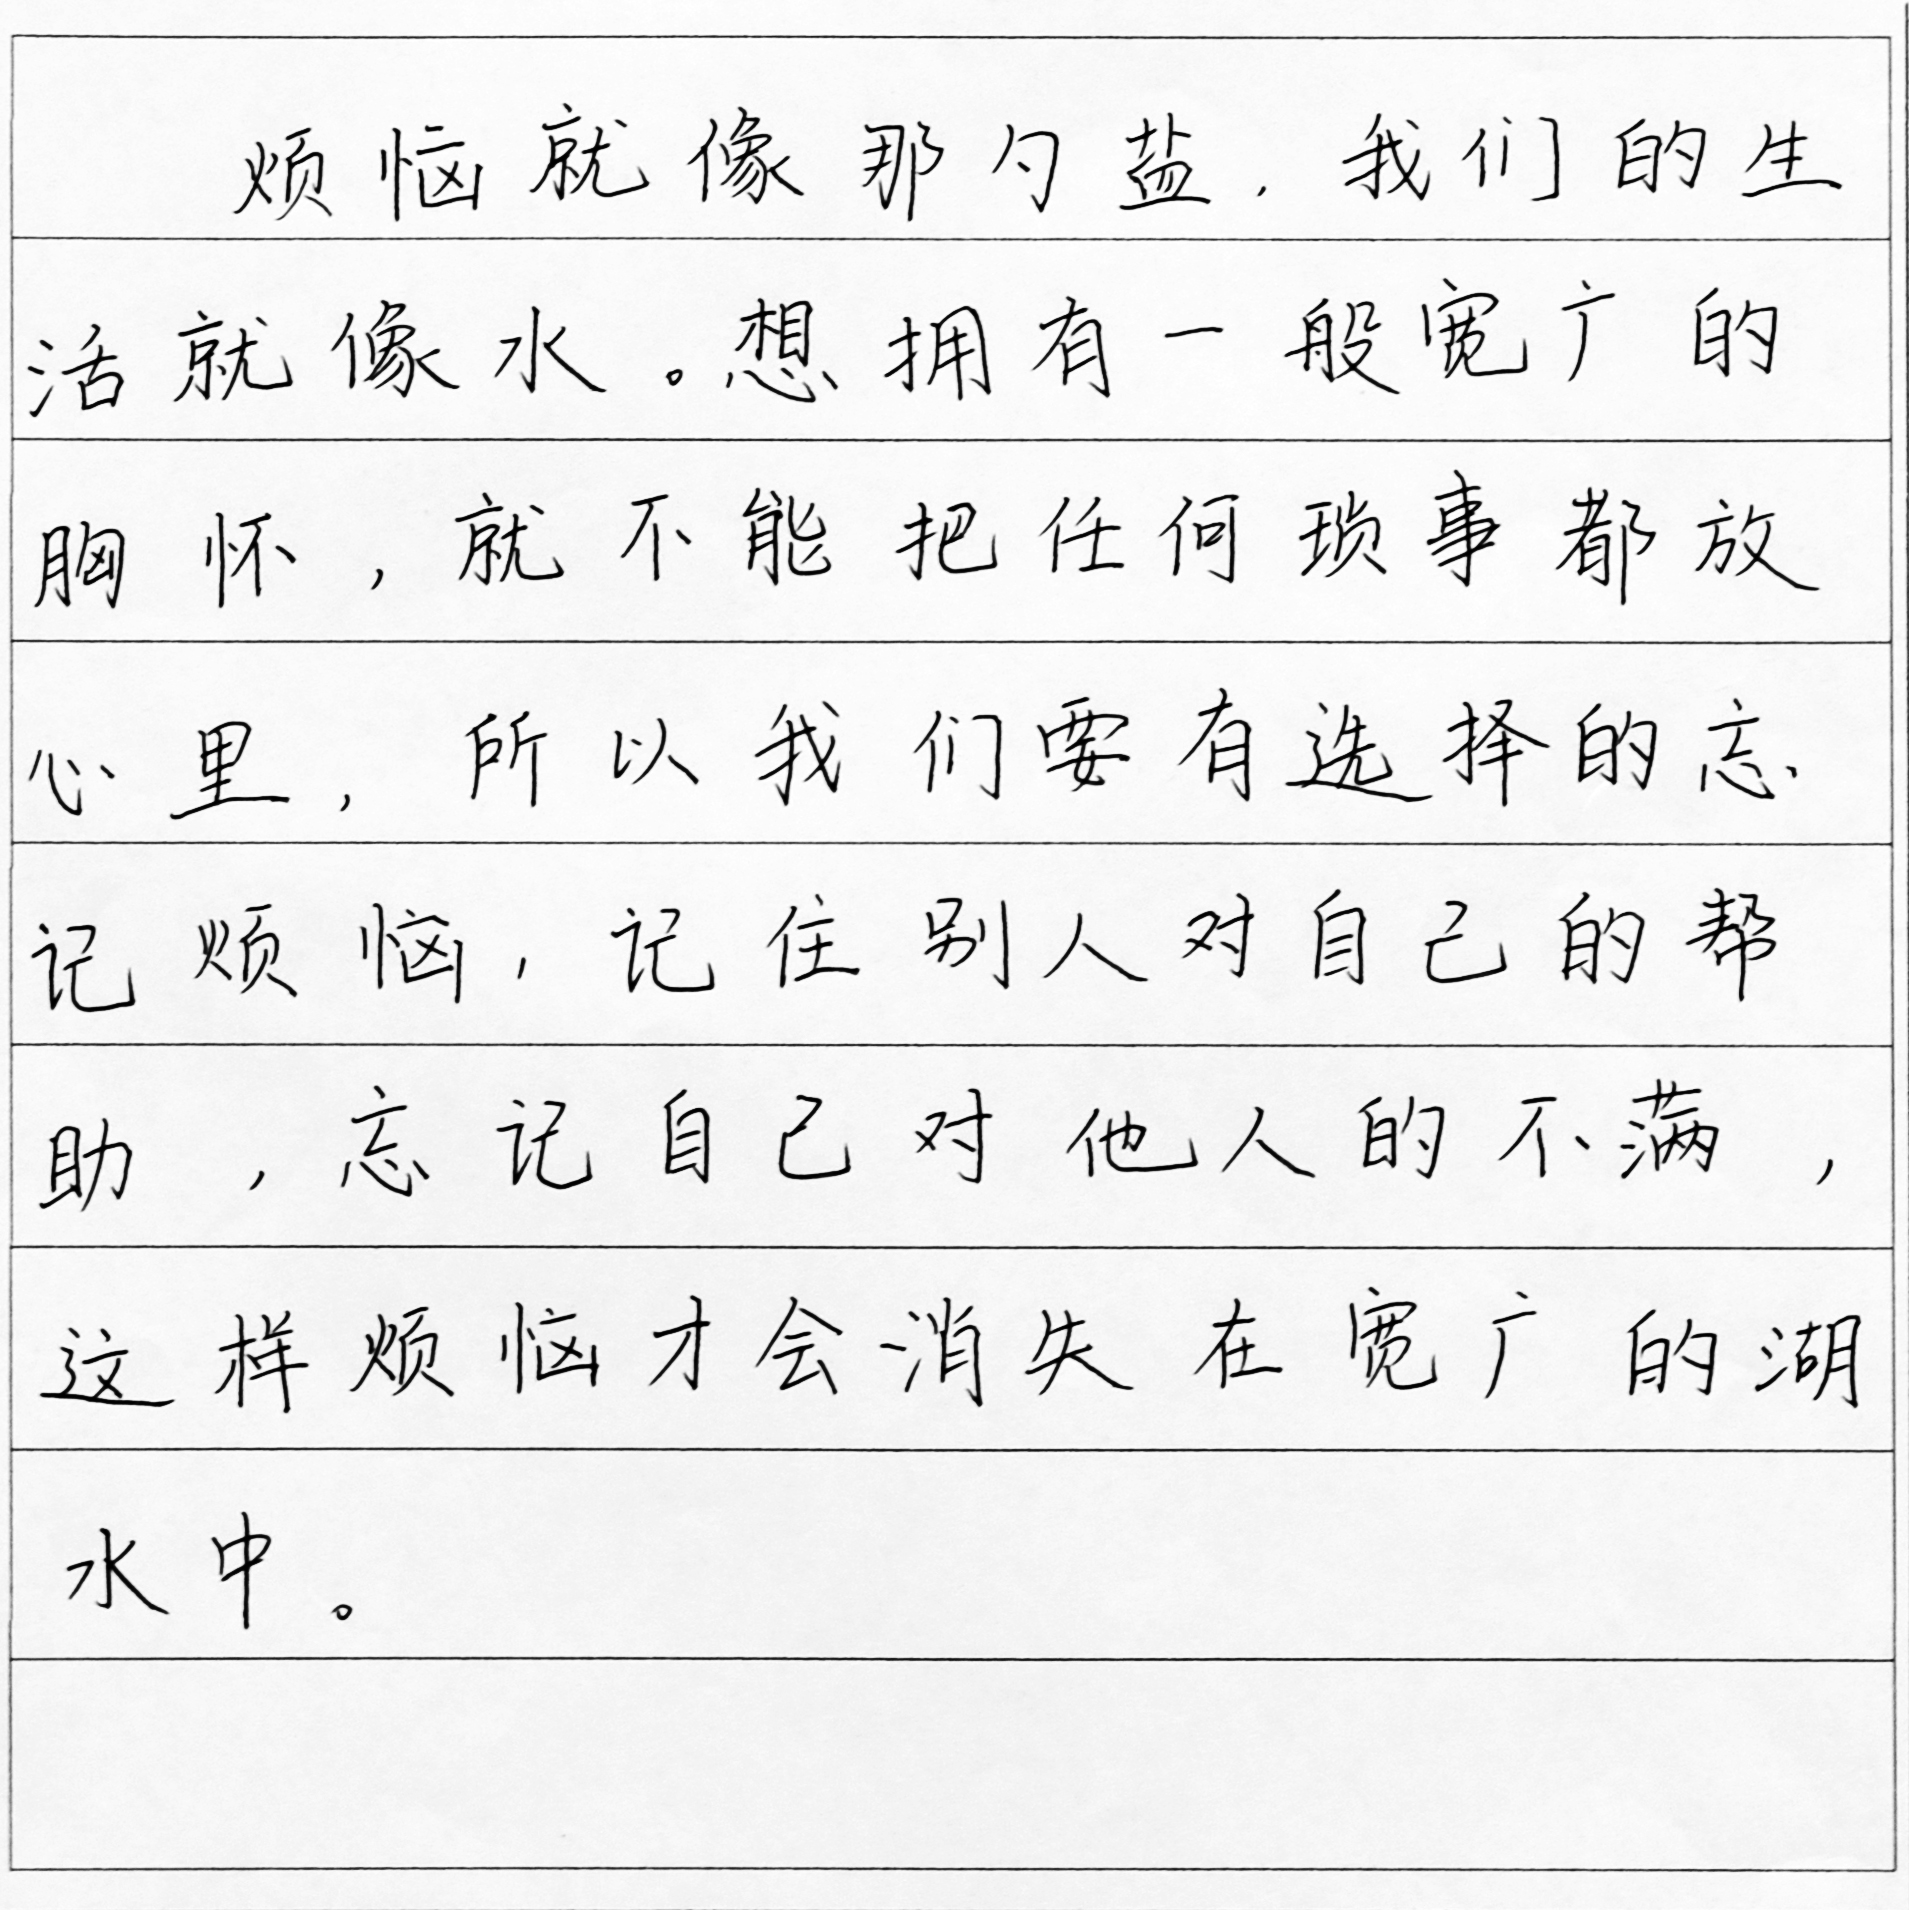 烦恼就像那勺盐，我们的生
活就像水。想拥有一般宽广的
胸怀，就不能把任何琐事都放
心里，所以我们要有选择的忘
记烦恼，记住别人对自己的帮
助，忘记自己对他人的不满，
这样烦恼才会消失在宽广的湖
水中。